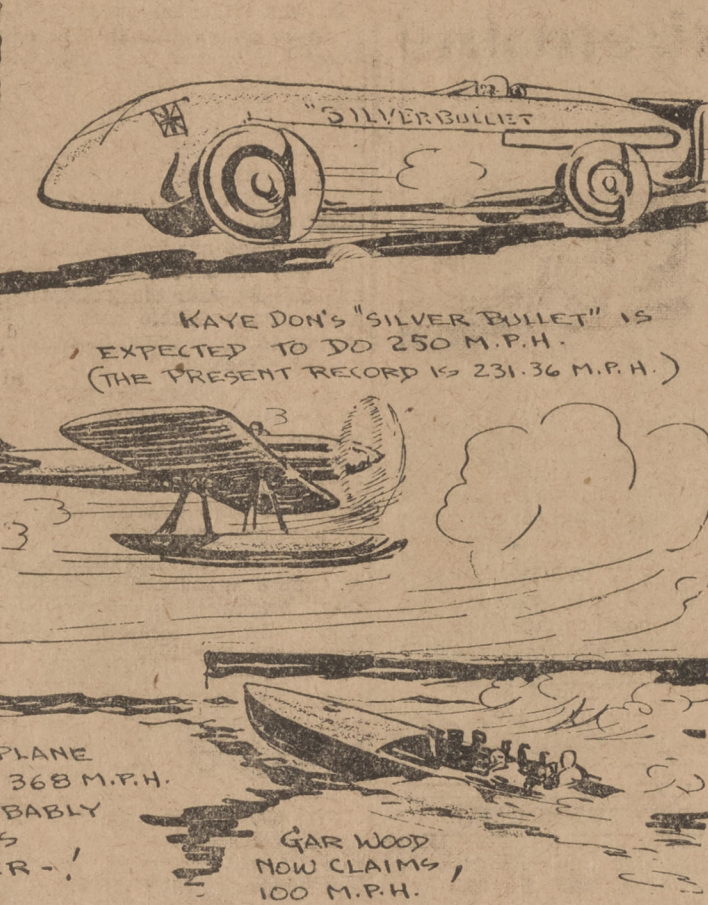 "SILVER BULLET
KAYE DON'S "SILVER BULLET" IS
EXPECTED TO DO 250 M.P.H.
(THE PRESENT RECORD IS 231.36 M.P.H.)
PLANE
368 M.P.H.
BABLY
S
R-!
GAR WOOD
NOW CLAIMS,
100 M.P.H.